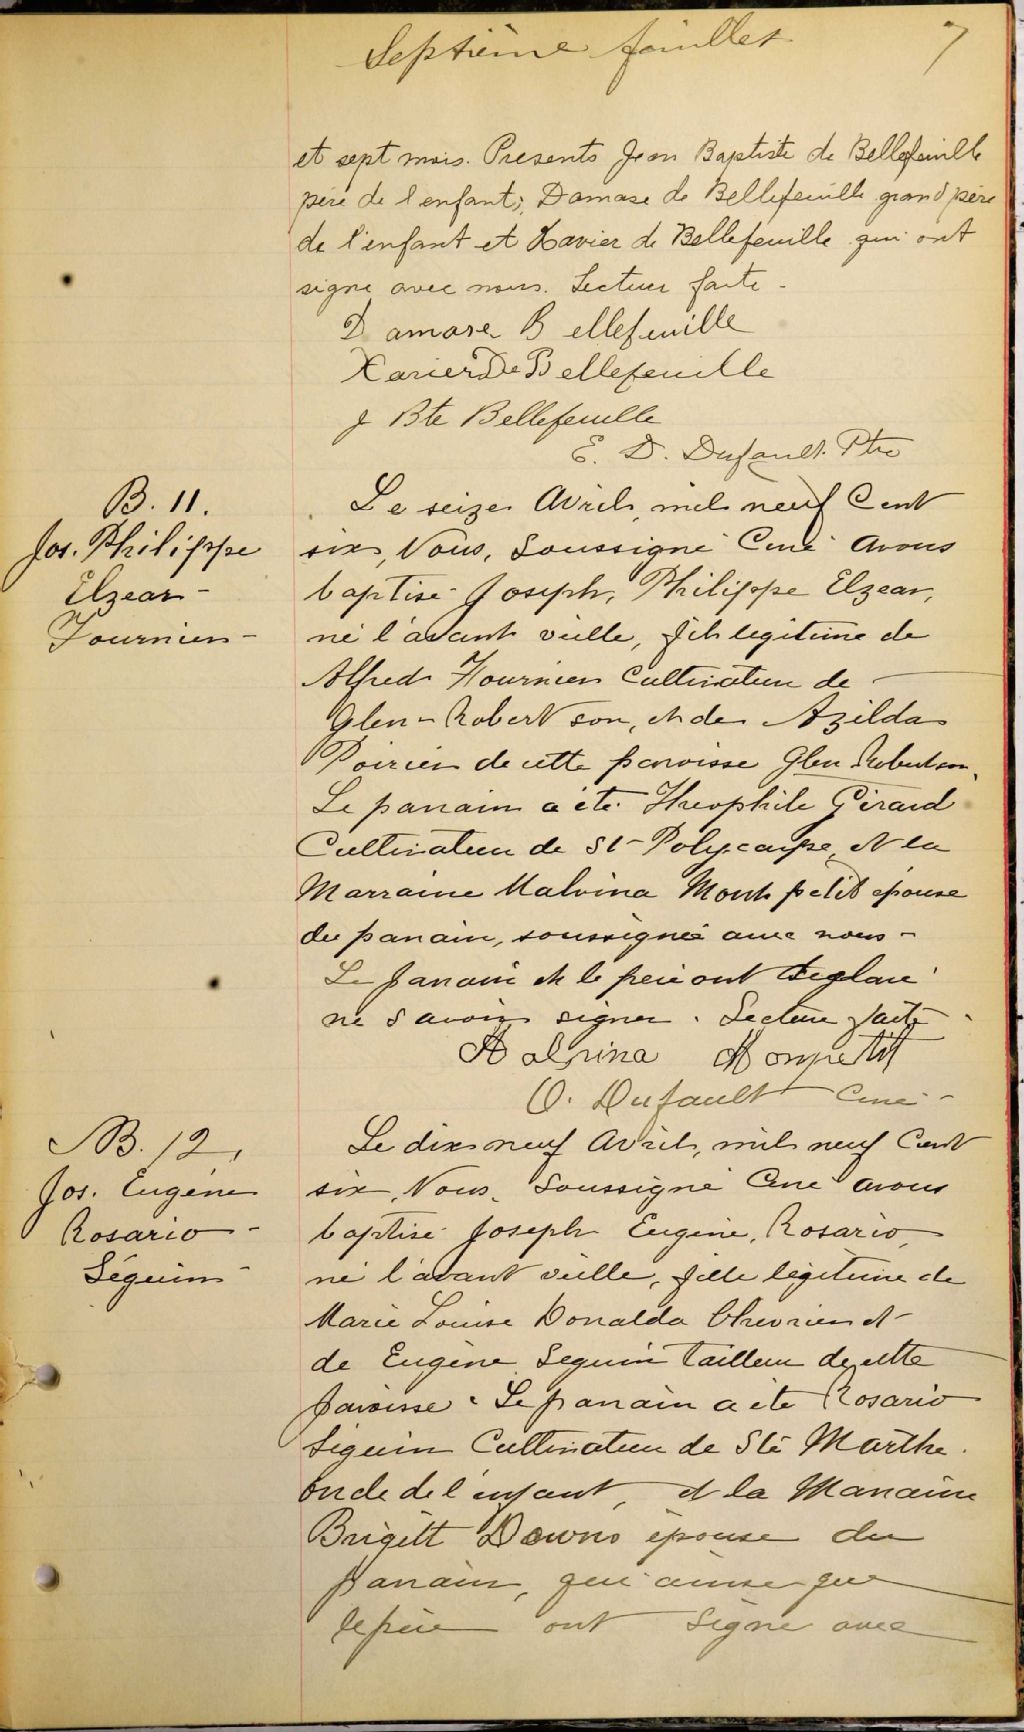 Septième feuillet 7
et sept mois. Presents Jean Baptiste de Bellefeuille
père de l'enfant; Damase de Bellefeuille grand père
de l'enfant et Xavier de Bellefeuille qui ont
signé avec nous. Lecture faite -
Damase Bellefeuille
Xavier De Bellefeuille
J Bte Bellefeuille
E. D. Dufault. Ptre
B. 11.
Jos. Philippe
Elzear -
Fournier -
Le seize Avril, mil neuf Cent
six, Nous, Soussigné Curé avons
baptisé Joseph, Philippe Elzear,
né l'avant veille, fils legitime de
Alfred Fournier Cultivateur de -
Glen - Robertson, et de Azilda
Poirier de cette paroisse Glen Robertson,
Le parrain a été Theophile Girard
Cultivateur de St - Polycarpe, et la
Marraine Malvina Montpetit épouse
du parrain, soussignée avec nous -
Le Parrain et le père ont declaré
ne savoir signer. Lecture faite
Malvina Monpetit
O. Dufault Curé -
B. 12,
Jos. Eugène
Rosario -
Séguin -
Le dix neuf Avril, mil neuf Cent
six, Nous, Soussigné Curé avons
baptisé Joseph Eugène, Rosario,
né l'avant veille, fille légitime de
Marie Louise Donalda Chevrier et
de Eugène Seguin Tailleur de cette
Paroisse. Le parrain a été Rosario
Séguin Cultivateur de Ste Marthe.
oncle de l'enfant, et la Marraine
Brigitt Downs épouse du
parrain, qui ainsi que
le père ont Signé avec